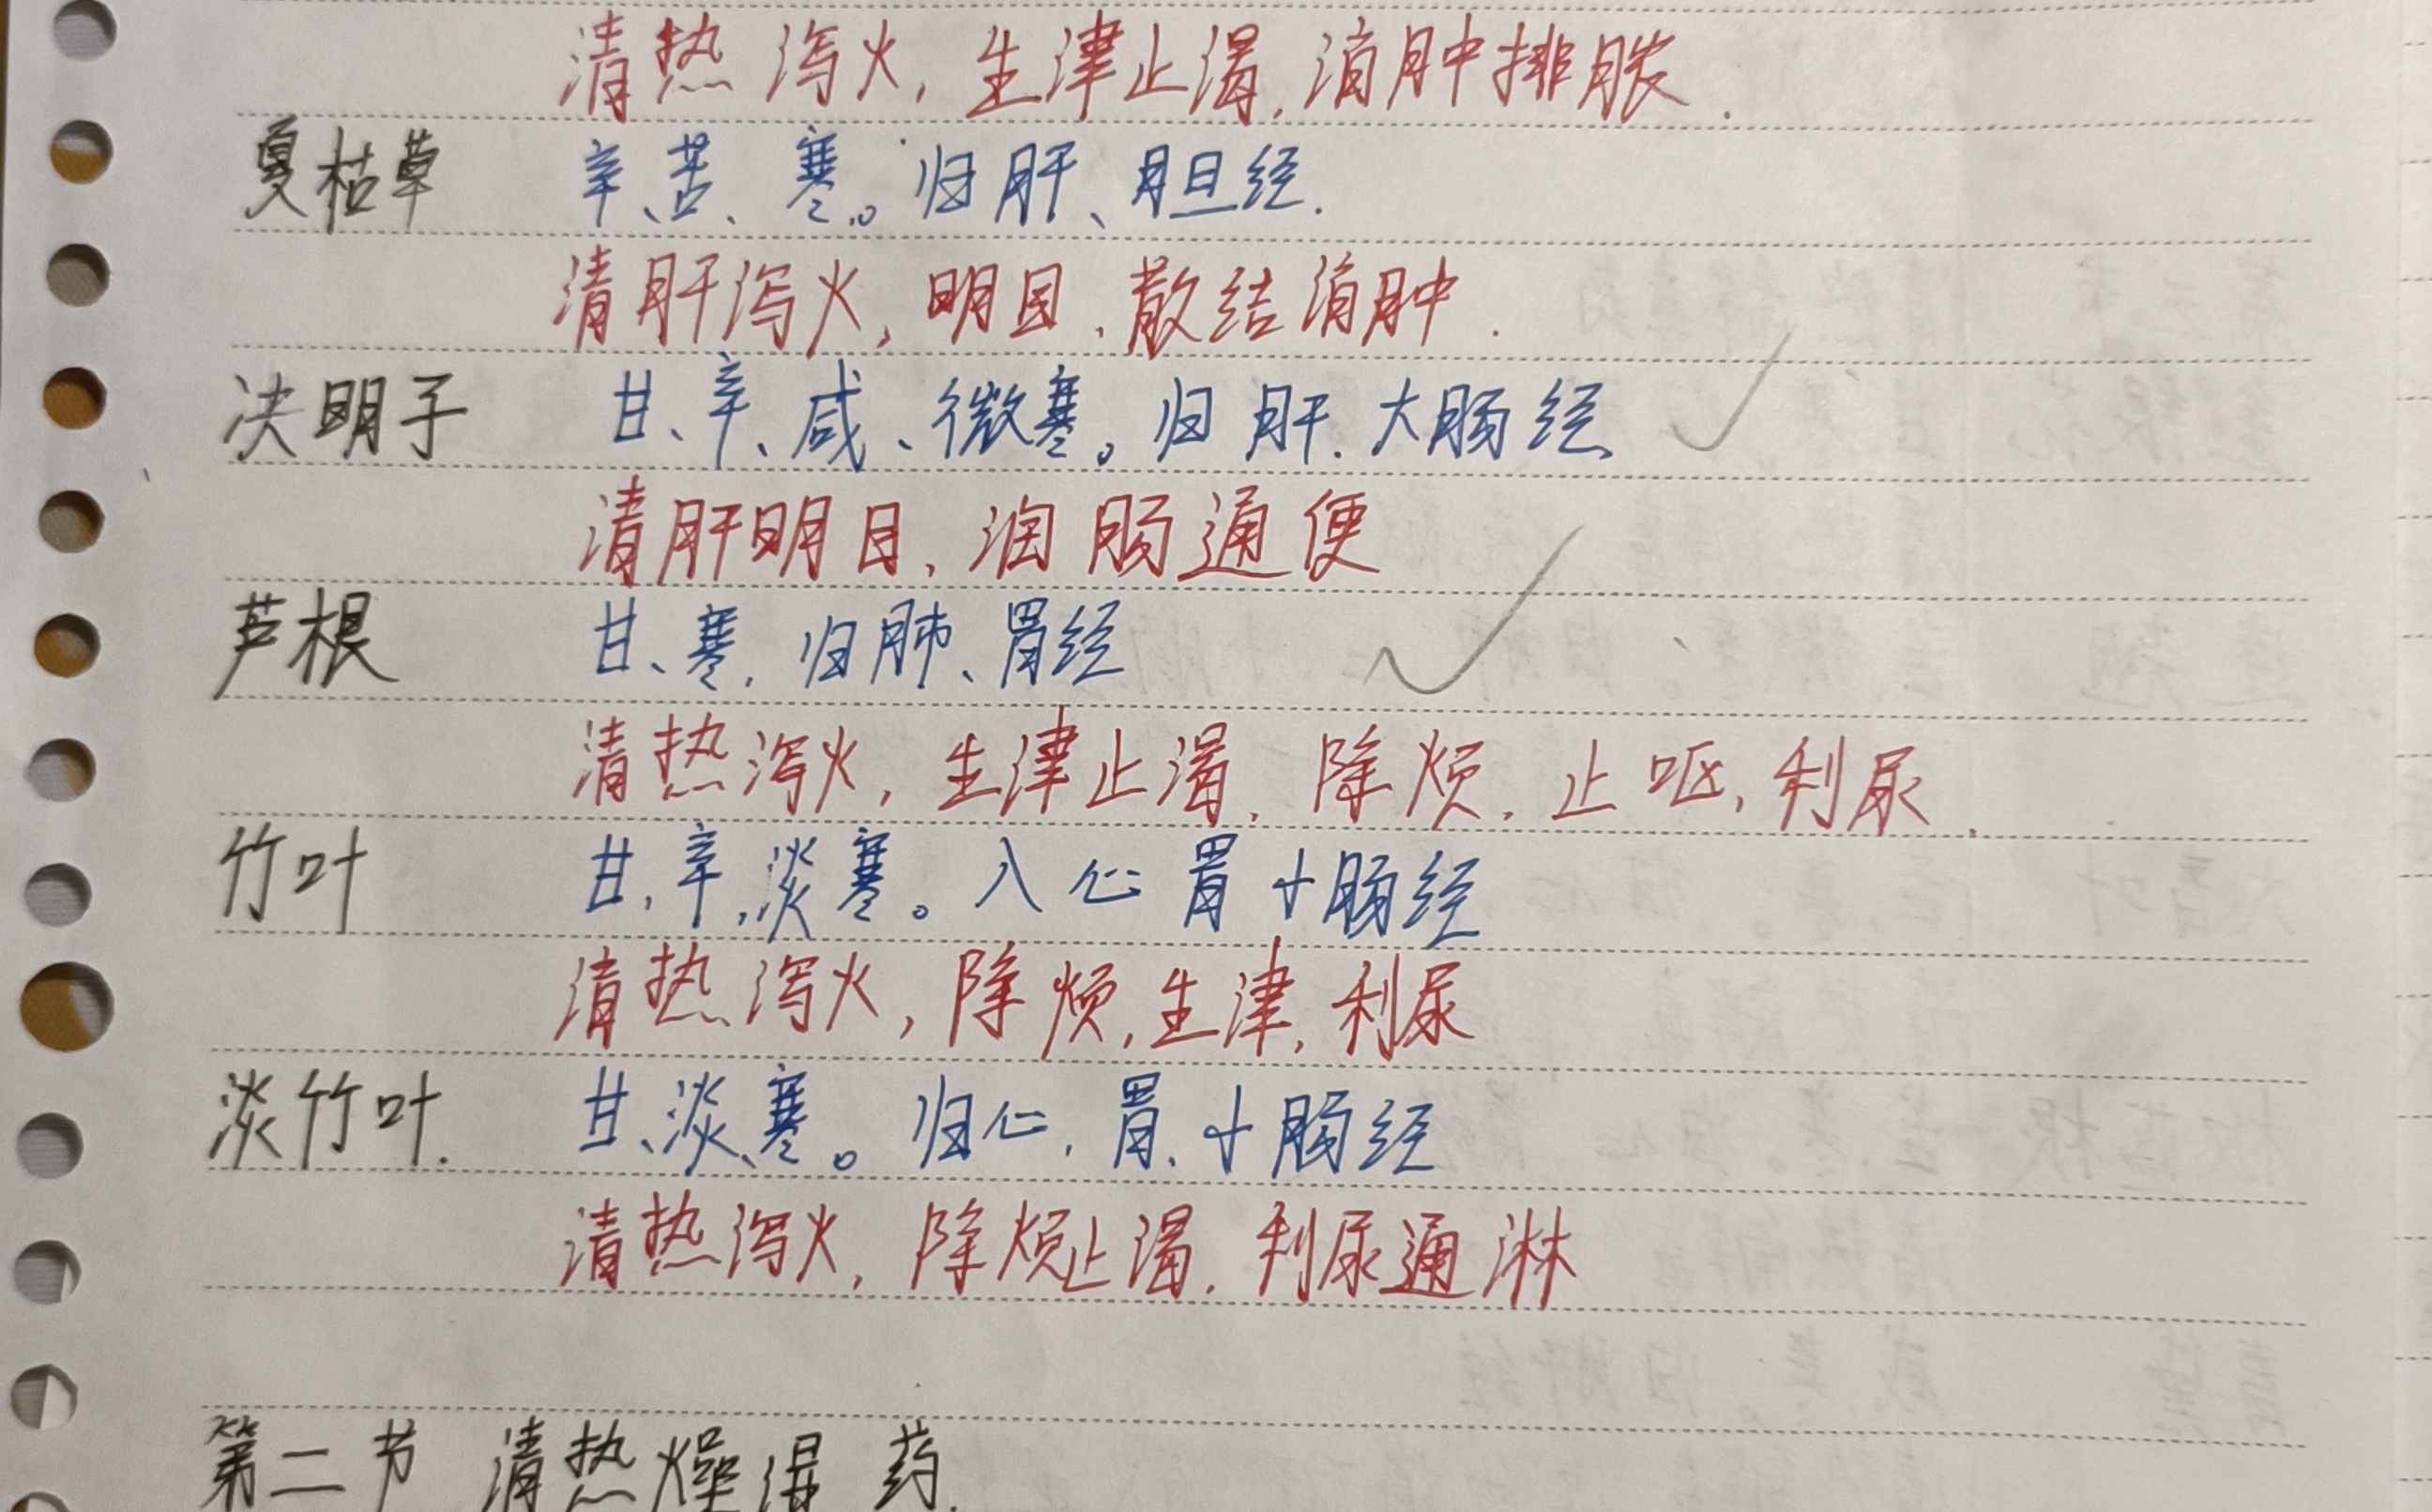 清热泻火，生津止渴，消肿排脓.
夏枯草 辛、苦、寒。归肝、胆经.
清肝泻火，明目，散结消肿.
决明子 甘、辛、咸、微寒。归肝、大肠经
清肝明目，润肠通便
芦根 甘、寒，归肺、胃经
清热泻火，生津止渴，除烦，止呕，利尿.
竹叶 甘，辛，淡寒。入心 胃 小肠经
清热泻火，除烦，生津，利尿
淡竹叶. 甘、淡、寒。归心，胃、小肠经
清热泻火，除烦止渴，利尿通淋
第二节 清热燥湿药.